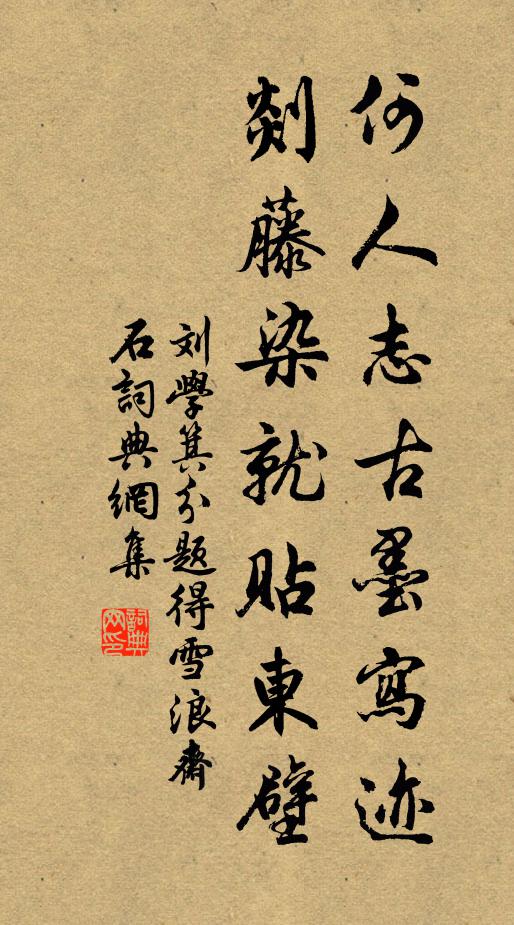 何人志古墨寫迹
剡藤染就貼東壁
刘學箕分题得雪浪齋
石詞典網集
詞典网印